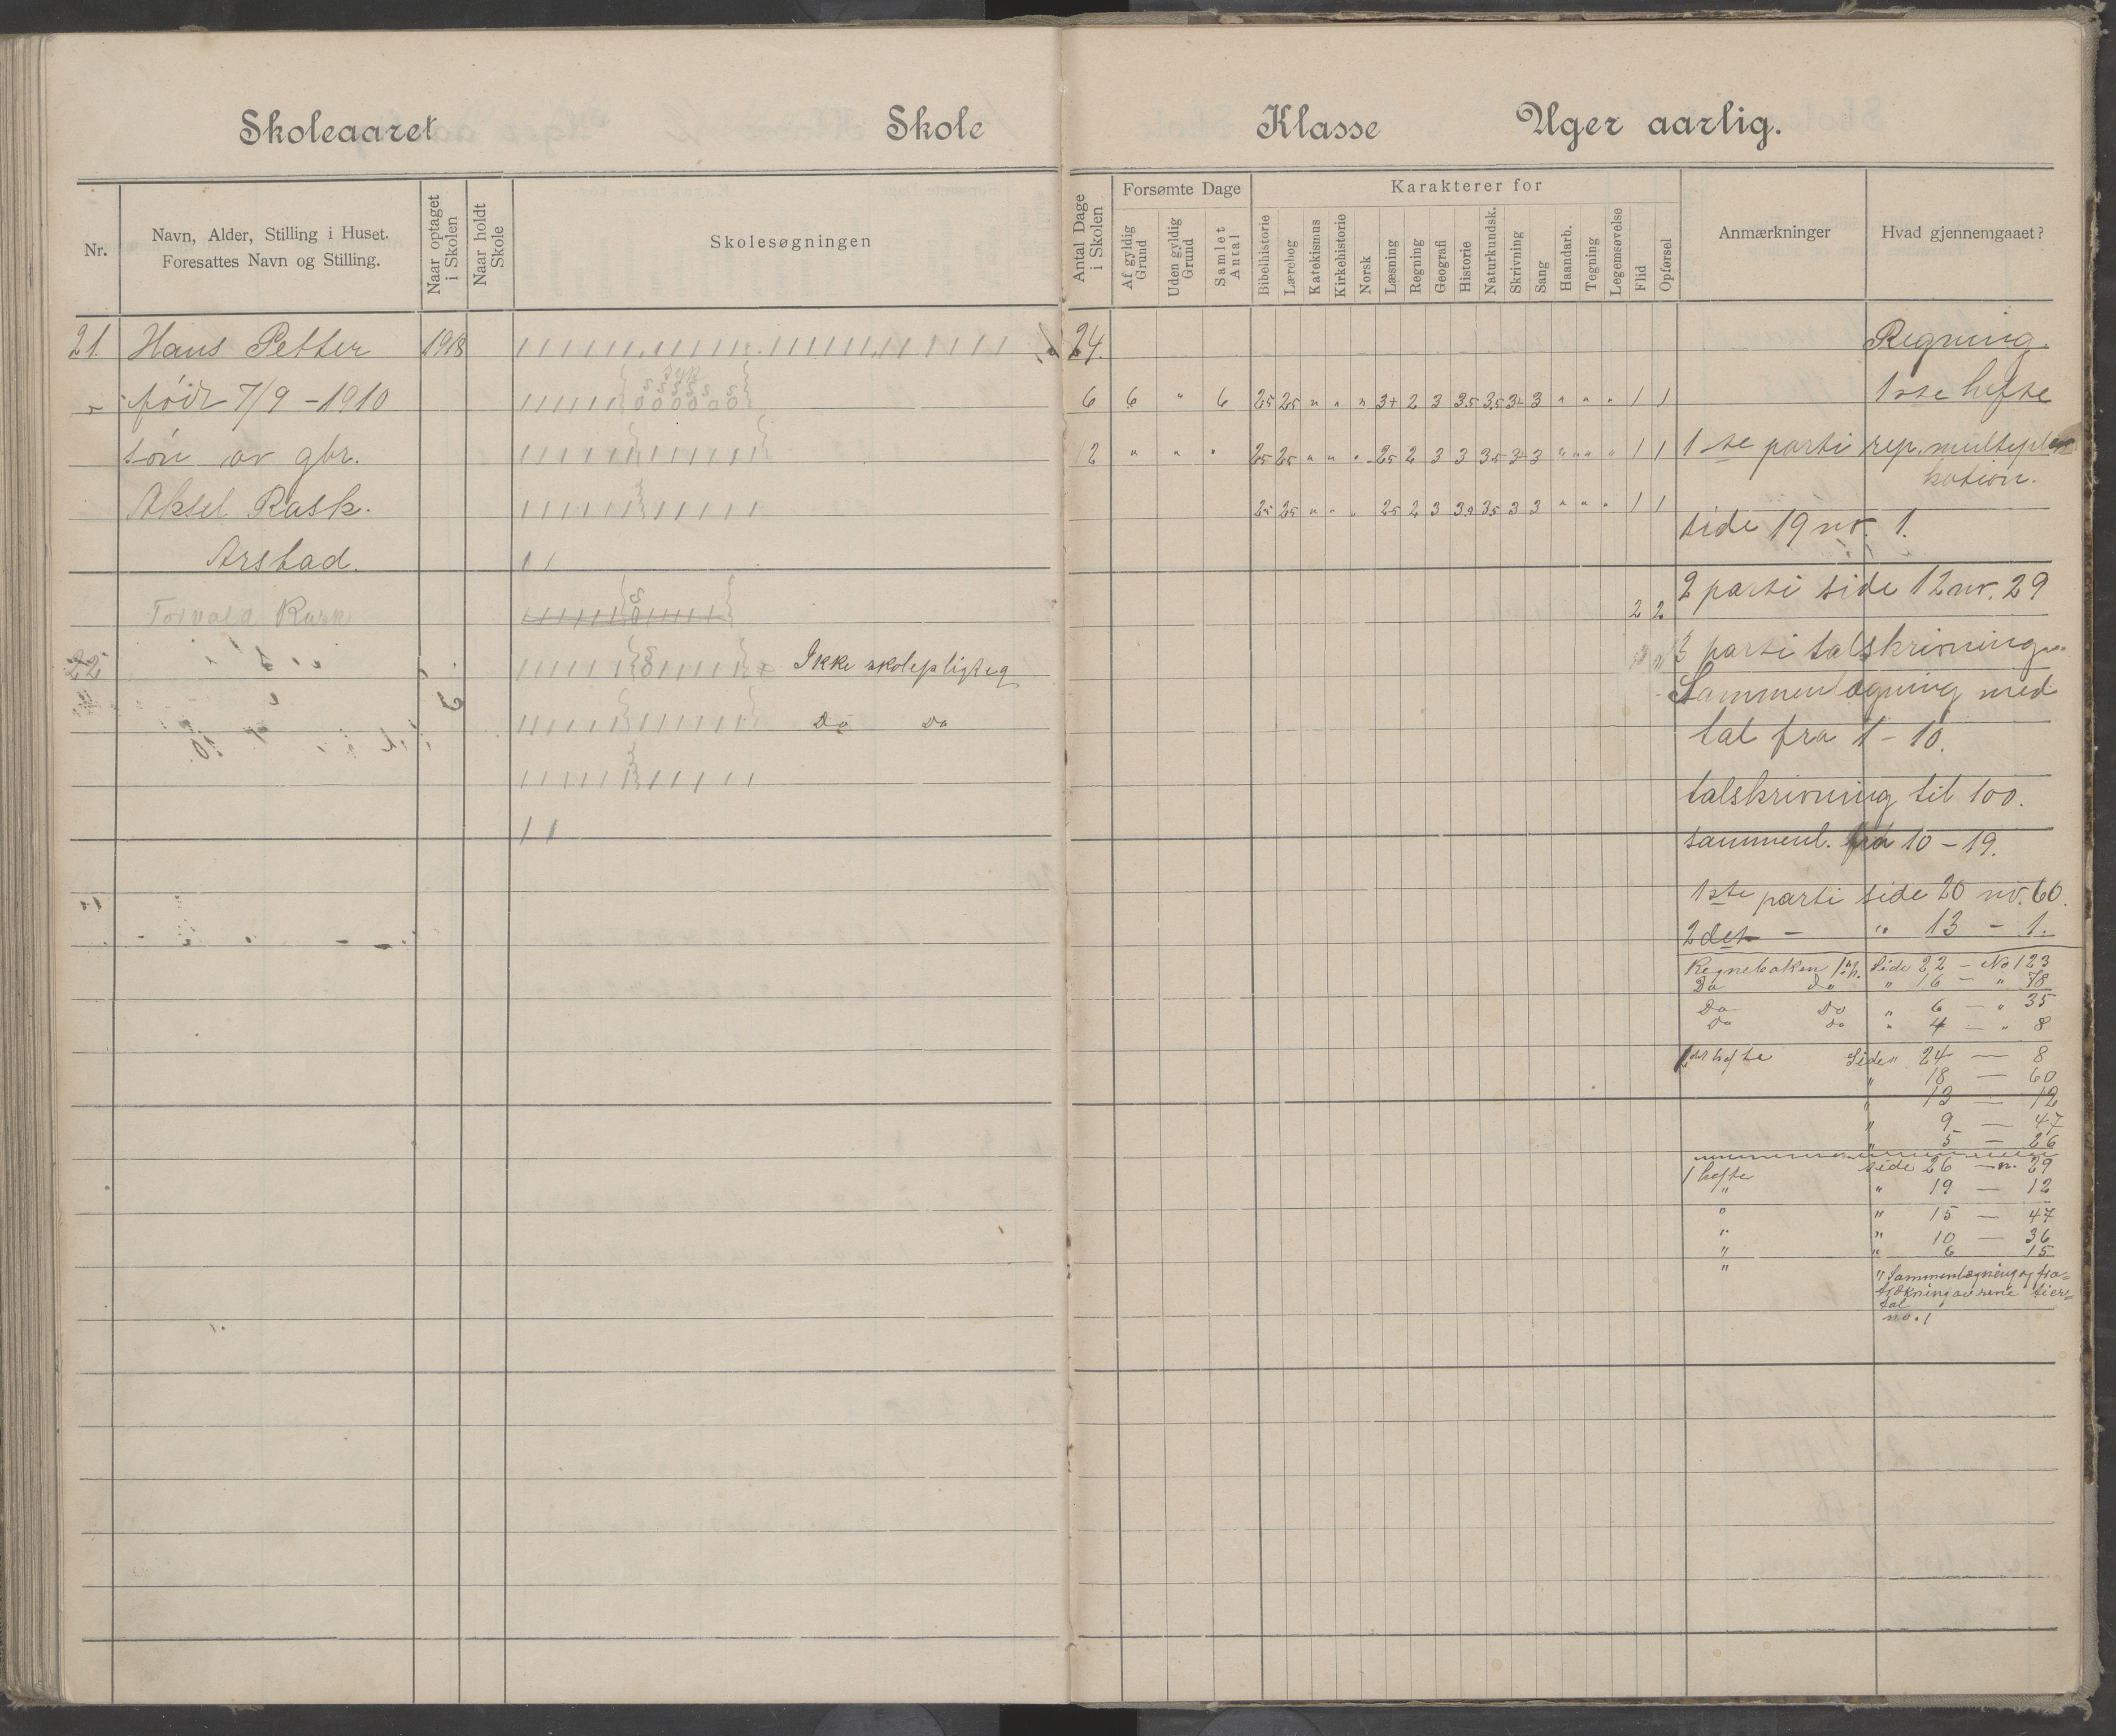 Skoleaaret Skole Klasse Uger aarlig.
Nr.
Navn, Alder, Stilling i Huset.
Foresattes Navn og Stilling.
Naar optaget
i Skolen
Naar holdt
Skole
Skolesøgningen
Antal Dage
i Skolen
Forsømte Dage
Af gyldig
Grund
Uden gyldig
Grund
Samlet
Antal
Karakterer for
Bibelhistorie
Lærebog
Katekismus
Kirkehistorie
Norsk
Læsning
Regning
Geografi
Historie
Naturkundsk.
Skrivning
Sang
Haandarb.
Tegning
Legemsøvelse
Flid
Opførsel
Anmærkninger
Hvad gjennemgaaet?
21. Hans Petter 1918 24. Regning.
født 7/9 - 1910 syk 6 6 " 6 25 25 " " " 3+ 2 3 35 35 3+ 3 " " " 1 1 1ste hefte
søn av gbr. 12 " " " 25 25 " " " 25 2 3 3 35 3+ 3 " " " " 1 1 1-ste parti rep. multipli
kation.
Aksel Rask. 25 25 " " " 25 2 3 35 35 3 3 " " " 1 1
side 19 nr. 1.
Arstad.
2 parti side 12 nr. 29
Torvald Rask 2 2
22 Ikke skolepligteg 3 parti talskrivning
Sammenlægning med
Do Do tal fra 1 - 10.
talskrivning til 100.
sammenl. fra 10 - 19.
1ste parti side 20 nr. 60.
2det - " 13 - 1.
Regneboken 1ste h. Side 22 - No 123
Do Do " 16 - " 78
Do Do " 6 - " 35
Do Do " 4 - " 8
1ste hefte Side " 24 - 8
" 18 - 60
" 13 - 12
" 9 - 47
" 5 - 26
1 hefte side 26 - n. 29
" " 19 - 12
" " 15 - 47
" " 10 - 36
" " 6 - 15
" " Sammenlægning og fra-
trækning av rene tier-
tal
no. 1